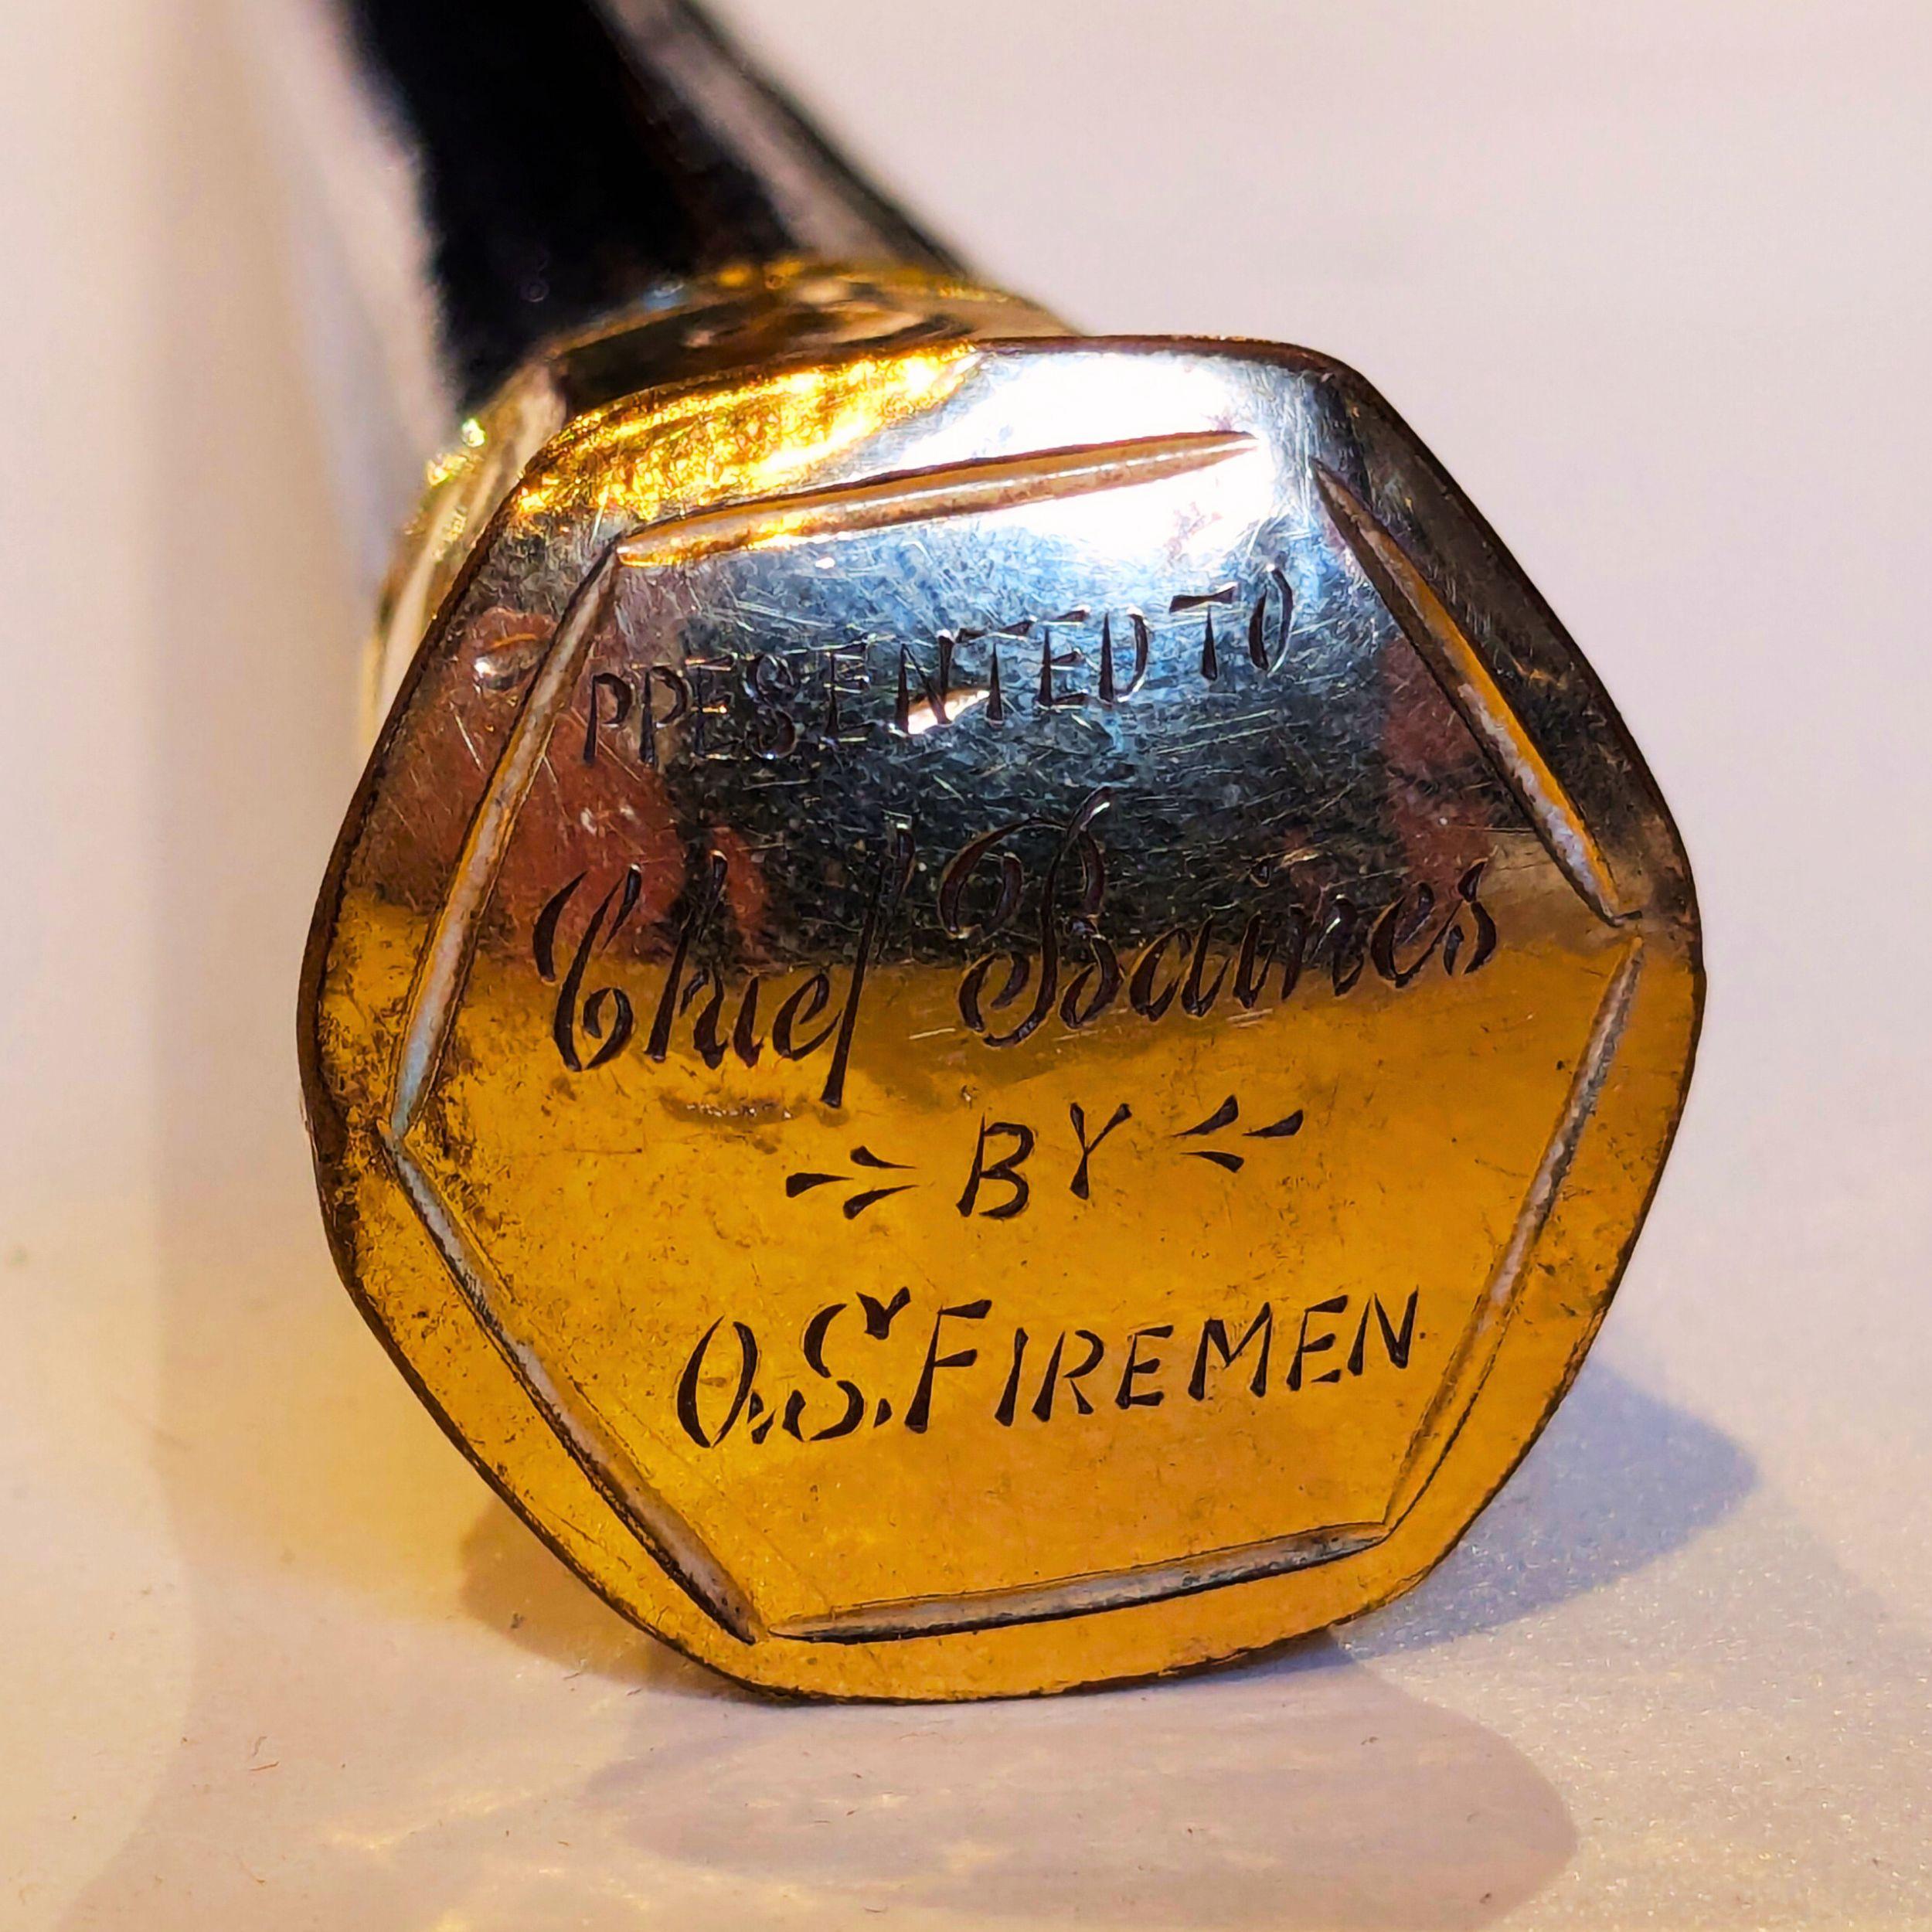 PRESENTED TO
Chief Baines
BY
O.S. FIREMEN